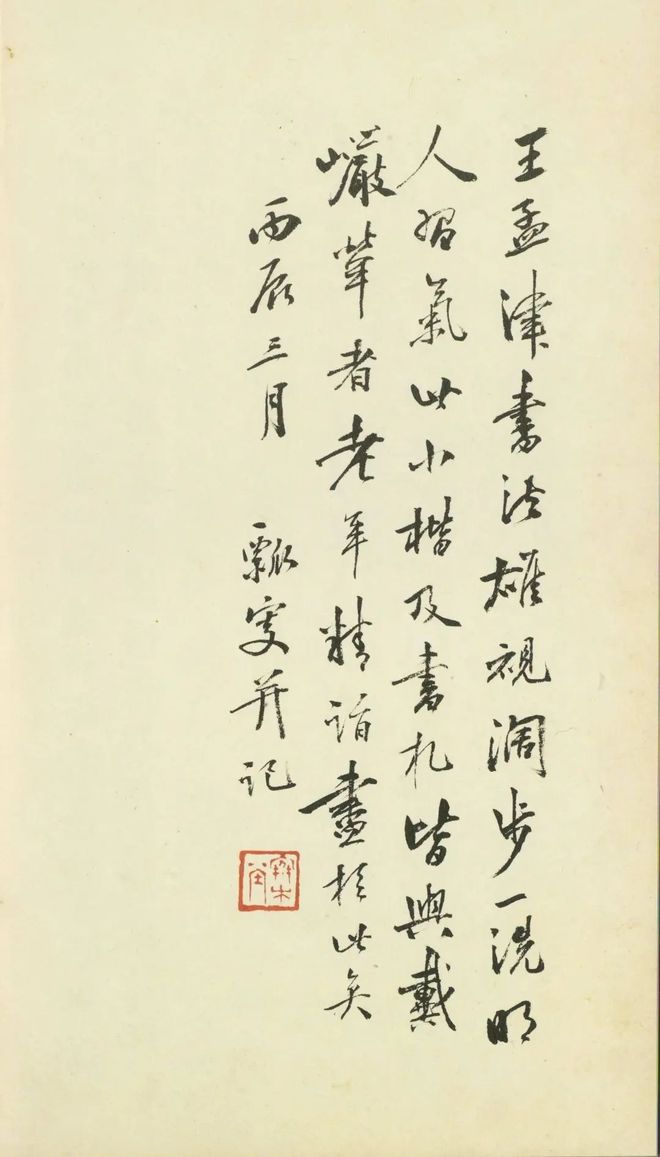 王孟津書法雄視濶步一洗明
人習氣此小楷及書札皆與戴
巗犖者老年精詣盡於此矣
丙辰三月 瓢叟并記